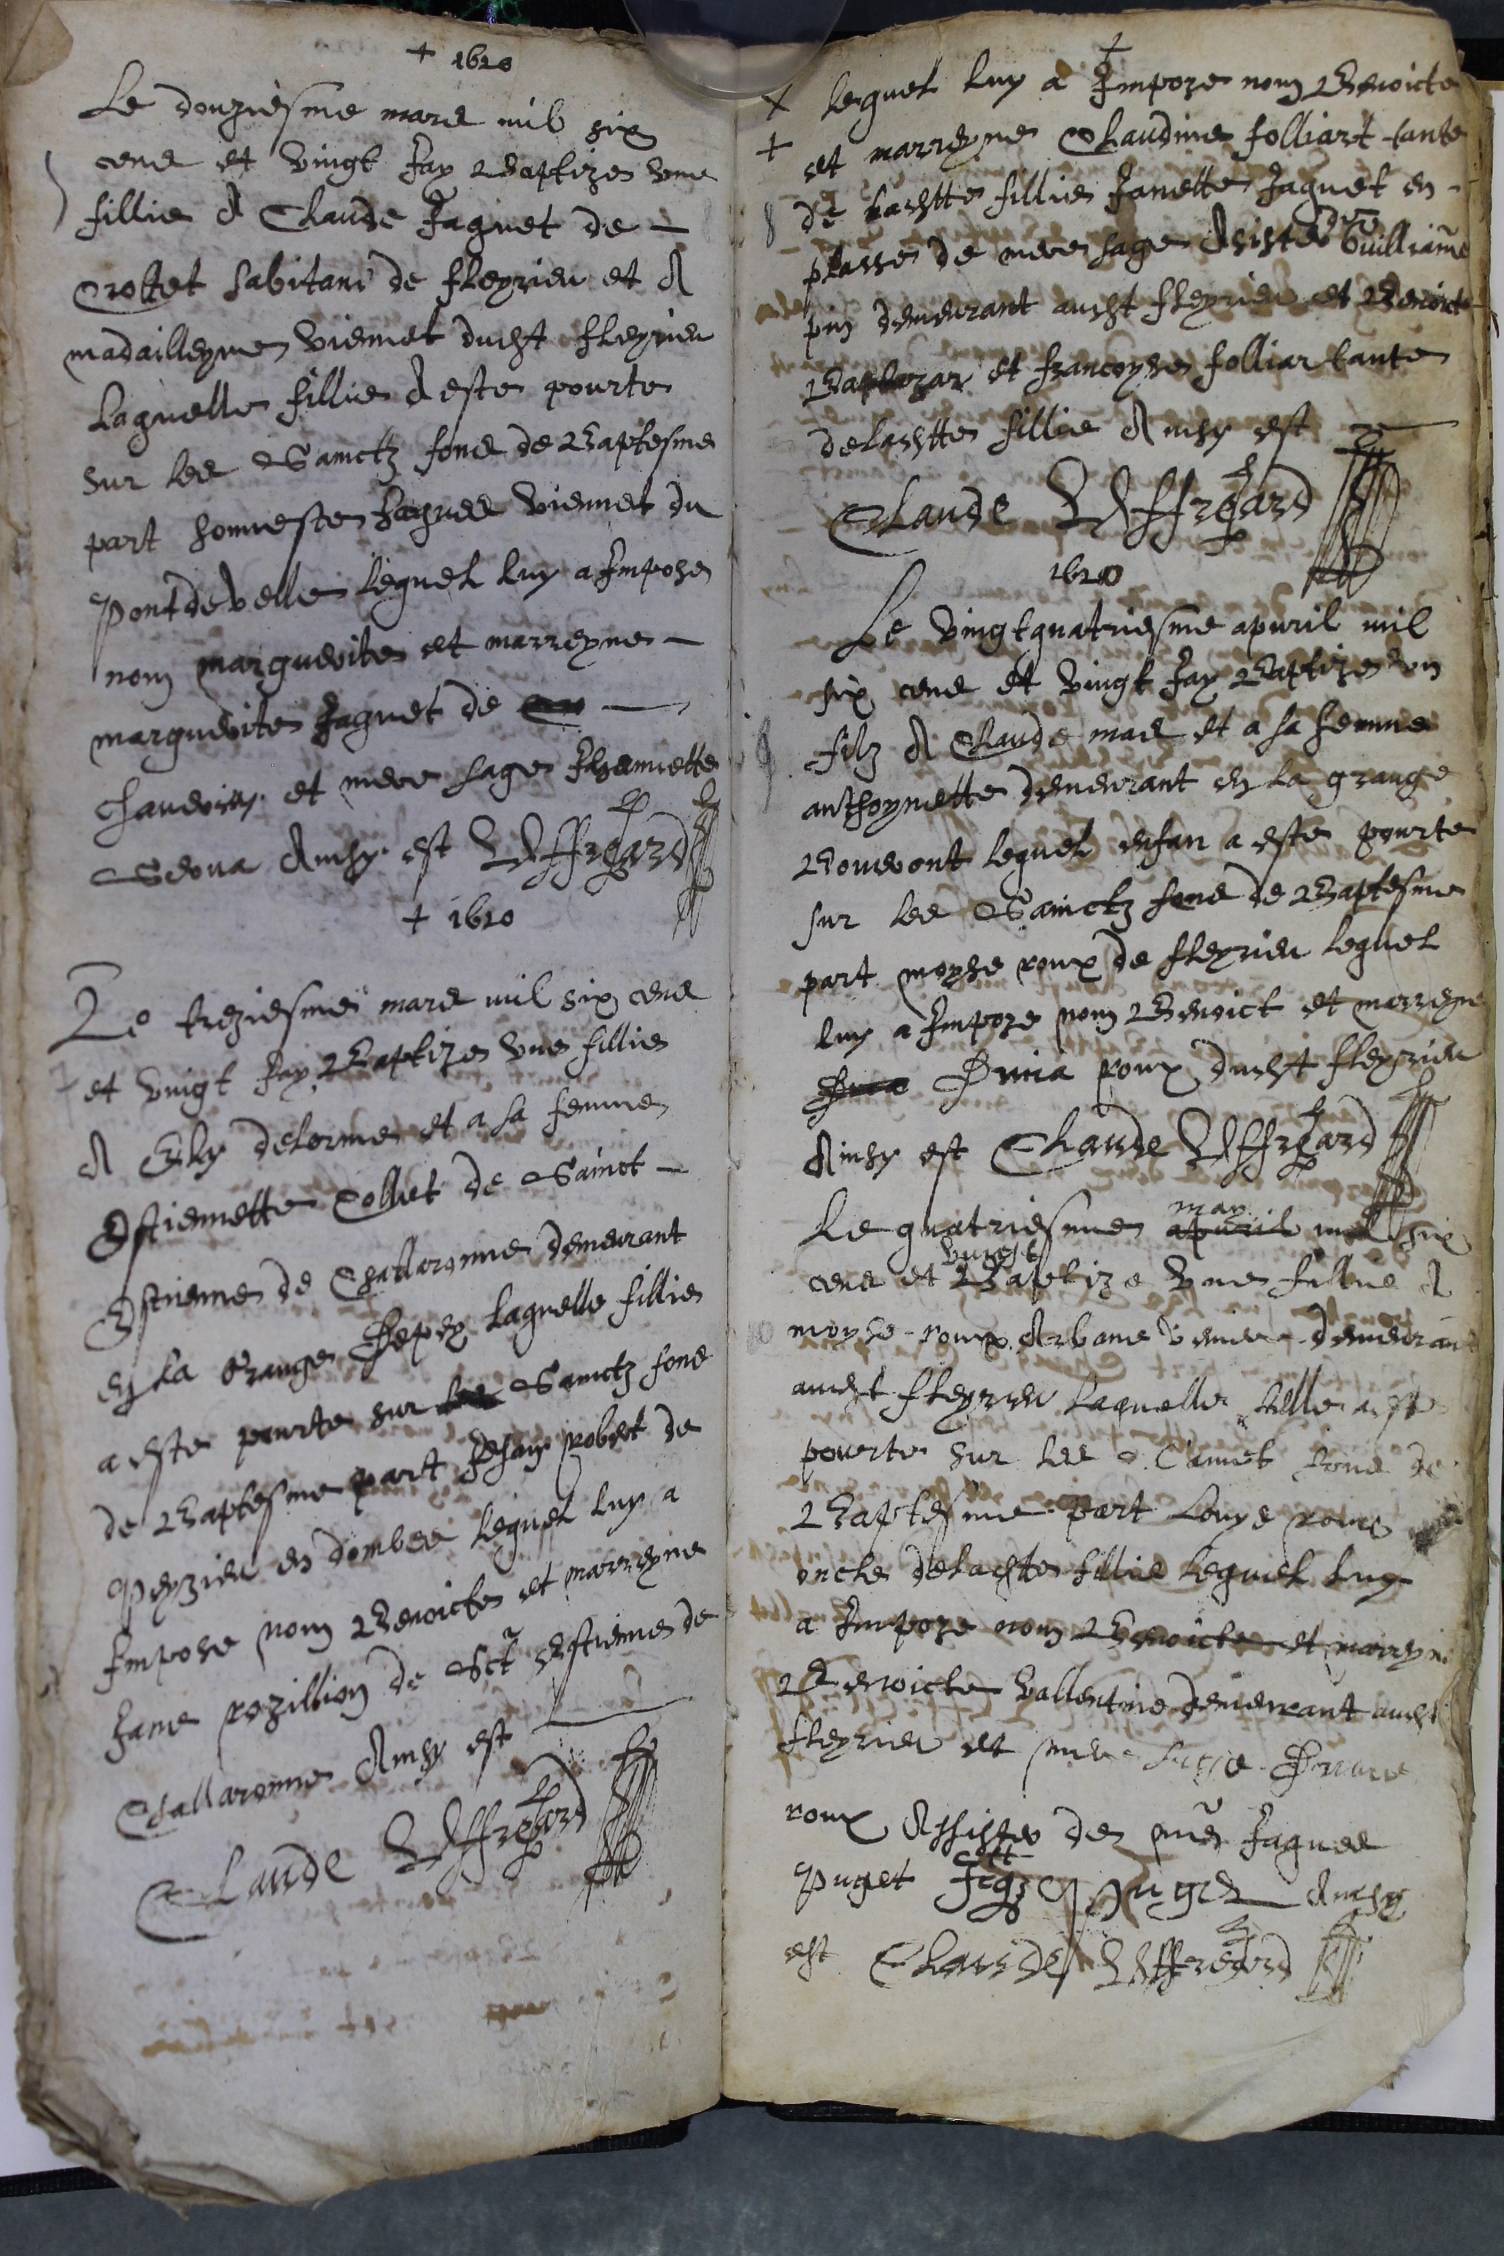 + 1620
Le douziesme mars mil six
cens et vingt Jay Baptize une
fillie A Claude Jaquet de —
Crottet habitant de fleyrieu et A
madalleyne Viennet dudht fleyrieu
Laquelle fillie A este pourte
sur les Sainctz fons de Baptesme
part honneste Jaques Viennet du
Pontdevelle lequel luy a Impose
nom marguerite et marreyne —
marguerite Jaquet de —
et mere sage Thiennette
Ainsy est Uffregard
+ 1620
Le treziesme mars mil six cens
et vingt Jay Baptize une fillie
A Ely delorme et a sa femme
Estiennette Collet de Sainct —
Estienne de Challaronne demeurant
en la Grange laquelle fillie
a este pourte sur les Sainctz fons
de Baptesme part Jehan robert de
Peyzieu en dombes lequel luy a
Impose nom Benoicte et marreyne
Jane rozillion de Sct Estienne de
Challaronne Ainsy est
Claude Uffregard
+
x lequel luy a Impoze nom Benoicte
+ et marreyne Claudine folliart tante
8 de lachtte fillie Janette Jaquet en -
plasse de mere sage Asiste de Guilliaume
pin demeurant audht fleyrieu et Benoict
et francoyse folliar tante
delachtte fillie Ainsy est
Claude Uffregard
1620
Le vingtquatriesme apvril mil
six cens et vingt Jay Baptize un
9 filz A Claude mas et a sa femme
anthoynette demeurant en la grange
lequel enfan a este pourte
sur les Sainctz fons de Baptesme
part moyse roux de fleyrieu lequel
luy a Impoze nom Benoict et marreyne
roux dudht fleyrieu
Ainsy est Claude Uffregard
Le quatriesme apvril may mil six
cens et vingt Baptize une fillie A
10 moyse roux demeurant
audht fleyrieu laquelle fillie a este
pourte sur les Sainct fons de
Baptesme part Louys roux
oncle delachtte fillie lequel luy
a Impoze nom Benoicte et marreyne
Benoicte Vallentine demeurant audht
fleyrieu et mere sage
roux Assiste de me Jaques
Puget Jaq Puget Ainsy
est Claude Uffregard